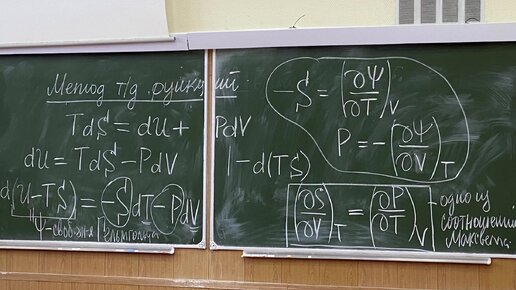 Метод т/д функций
TdS = dU + PdV
dU = TdS - PdV |-d(TS)
d(U-TS) = -SdT - PdV
Ψ - своб. эн-я Гельмгольца
-S = (∂Ψ/∂T)_V
P = -(∂Ψ/∂V)_T
(∂S/∂V)_T = (∂P/∂T)_V - одно из
соотношений
Максвелла